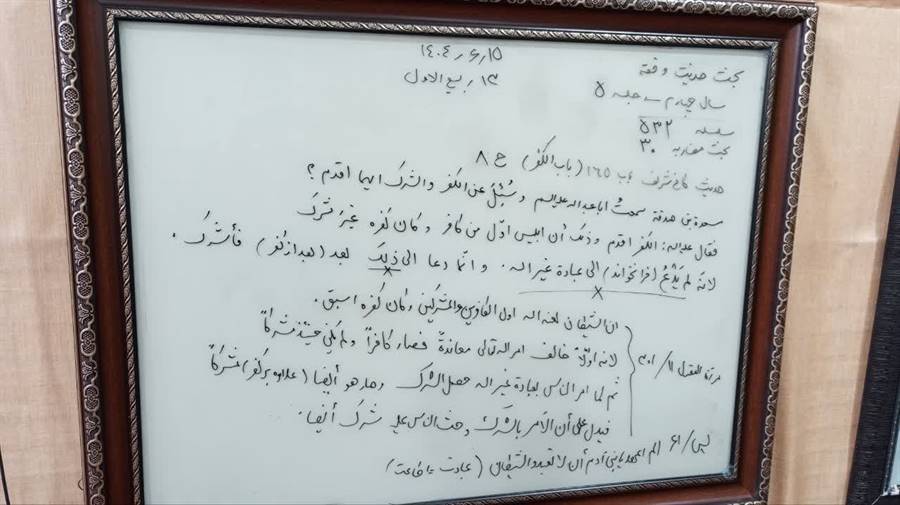 بحث حدیث و فقه
۱۴۰۴٫۶٫۱۵
۱۳ ربیع الاول
سال چهارم - جلسه ۵
سلسله ۵۳۲
بحث مقارنه ۳۰
حدیث کافی شریف ب ۱۶۵ (باب الکفر) ح ۸
مسعدة بن صدقة سمعتُ اباعبدالله علیه السلام و سُئِلَ عن الکفر و الشرک ایهما اقدم ؟
فقال علیه السلام: الکفر اقدم و ذلک أن ابلیس اوّل من کافر و کان کفره غیرَ شرک
لانّه لم یَدْعُ (فرانخواند) الی عبادة غیر الله. و انّما دعا الی ذلِکَ بعد (بعد از کفر) فأشرک.
مرآة العقول ۱۱/ ۳۰۱
ان الشیطان لعنه الله اول الکافرین والمشرکین و کان کفره اسبق.
لانه اوّلاً خالف امر الله تعالی معاندةً فصار کافراً و لم یکن حینئذ مشرکاً
ثم لما امر الناس بعبادة غیر الله حصل الشرک و صار هو أیضا (علاوه بر کفر) مشرکاً
فیدل علی أن الآمر بالشرک و حث الناس علیه شرک أیضا.
یس/ ۶۱ الم اعهد یا بنی آدم أن لا تعبدوا الشیطان (عبادت = اطاعت)